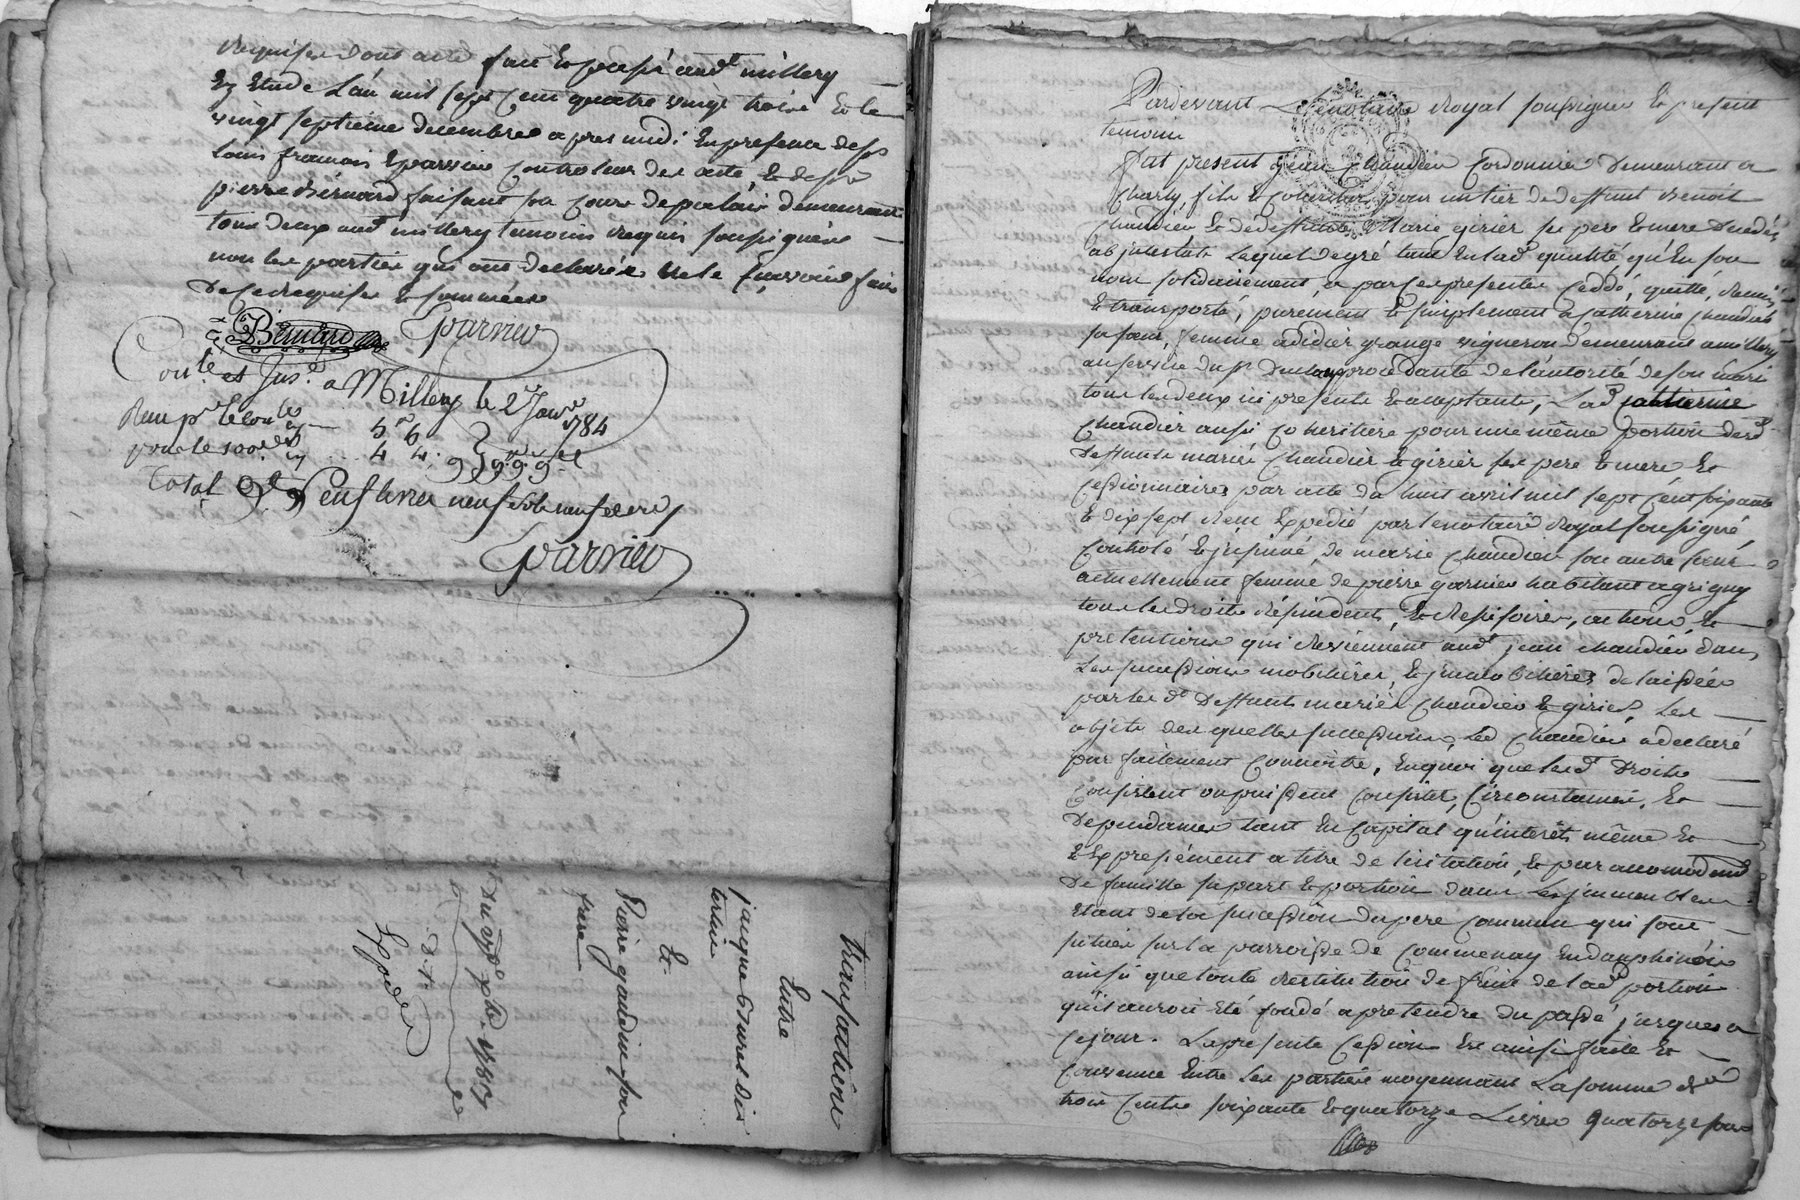 requises dont acte fait et passé aud.t millery
en Etude L'an mil sept Cent quatre vingt trois Et le
vingt septieme decembre apres midi: En presence de s.r
louis francois Eparvier Controleur des acte, et de s.r
pierre Bernard faisant sa Cour de palais demeurant
tous deux aud.t millery temoins requis soussignés
non les parties qui ont declarées ne le sçavoir faire
De Ce requises et sommées
Bernard Eparvier
Con.té et Ins.é a Millery le 2.e Janv.r 1784
Reçu p.r le Con.le 5# 6
pour le 100.e 4 4:
Total neuf livres neuf sols neuf deniers
Eparvier
transaction
Entre
jacque Duret dit
Et
Pierre gaudin son
frere
Pardevant Le Notaire Royal soussigné Et present
temoins
Fut present jean Chandier Cordonnier Demeurant a
Charly, fils Et Coheritier pour un tier de deffunt Benoit
Chandier Et de deffunte Marie girier ses pere Et mere Decedés
ab intestat Lequel de gré tant En lad.e qualité qu'En son
nom solidairement, a par Ces presentes Ceddé, quitté, Remis,
Et transporté, purement Et simplement a Catherine Chandier
sa soeur, femme a didier grange vigneron demeurant a millery
au service du s.r procedante de l'autorité de son mari
tous les deux ici presents Et acceptants, Lad.e Catherine
Chandier aussi Coheritiere pour une même portion desd.
Deffunts mariés Chandier Et girier ses pere Et mere Et
Cessionnaires par acte du huit avril mil sept Cent soixante
Et dix sept Reçu Expedié par le notaire Royal soussigné,
Controlé Et jnsinué, de marie Chandier son autre soeur
actuellement femme de pierre garnier habitant a grigny
tous les droits Réscindents, Et Rescisoires, actions, Et
pretentions qui Reviennent aud.t jean Chandier dans
Les successions mobiliéres, Et jmmobiliéres delaissées
par les d.s Deffunts mariés Chandier Et girier, Les
objets des quelles successions, Led. Chandier a declaré
parfaitement Connoitre, En quoi que lesd.s Droits
Consistent ou puissent Consister, Circonstances, Et
Dependances tant En Capital qu'interêts même Et
Expressément a titre de licitation, Et par accomodement
De famille sa part Et portion dans Les jmmeubles
Etant de la succession du pere Commun qui sont
situés sur la parroisse de Commenay En dauphiné
ainsi que toute Restitution de fruit de lad.e portion
qu'il auroit Eté fondé a pretendre du passé jusques a
Ce jour. La presente Cession Est ainsi faite Et
Convenue Entre Les parties moyennant La somme de
trois Cents soixante Et quatorze Livres quatorze sous